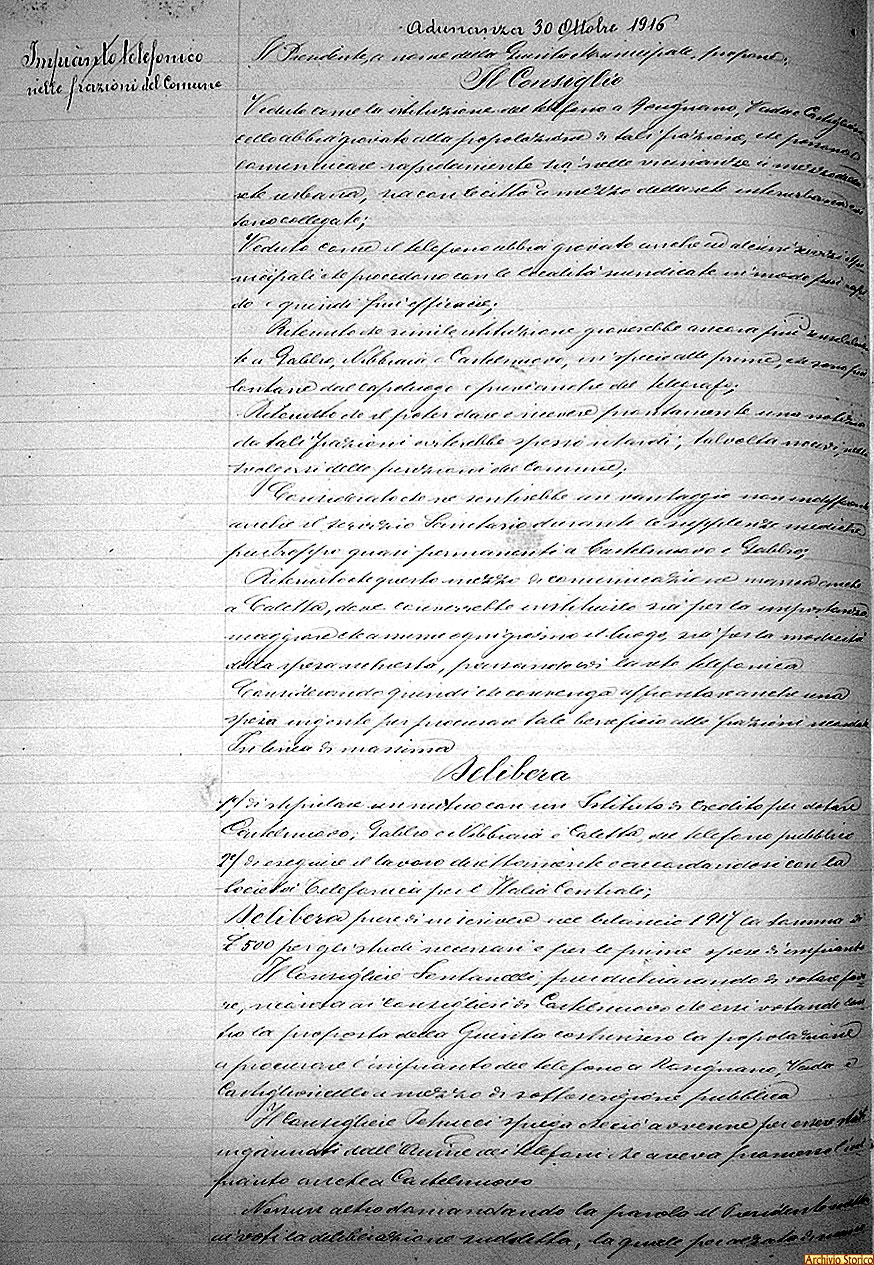 Adunanza 30 Ottobre 1916
Impianto telefonico
nelle frazioni del Comune
Il Presidente, a nome della Giunta Municipale, propone:
Il Consiglio
Veduto come la istituzione del telefono a Rosignano, Vada e Castiglion-
cello abbia giovato alla popolazione di tali frazioni, che possono
comunicare rapidamente sia nelle vicinanze a mezzo della
rete urbana, sia con le città a mezzo della rete interurbana cui
sono collegate;
Veduto come il telefono abbia giovato anche ad alcuni servizi mu-
nicipali che procedono con le località suindicate in modo più rapi-
do e quindi più efficace;
Ritenuto che simile istituzione gioverebbe ancora più
a Gabbro, Nibbiaia e Castelnuovo, in specie alle prime, che sono più
lontane dal capoluogo e prive anche del telegrafo;
Ritenuto che il poter dare e ricevere prontamente una notizia
da tali frazioni eviterebbe spesso ritardi, talvolta nocivi, nello
svolgersi delle funzioni del Comune;
Considerato che ne sentirebbe un vantaggio non indifferente
anche il servizio Sanitario durante le supplenze mediche
purtroppo quasi permanenti a Castelnuovo e Gabbro;
Ritenuto che questo mezzo di comunicazione manca anche
a Caletta, dove converrebbe instituirlo sia per la importanza
maggiore che assume ogni giorno il luogo, sia per la modicità
della spesa richiesta, passandovi la rete telefonica
Considerando quindi che convenga affrontare anche una
spesa ingente per procurare tale beneficio alle frazioni ricordate
In linea di massima
Delibera
1°/ di stipulare un mutuo con un Istituto di Credito per dotare
Castelnuovo, Gabbro e Nibbiaia e Caletta, del telefono pubblico
2°/ di eseguire il lavoro direttamente o accordandosi con la
Società Telefonica per l'Italia Centrale;
Delibera pure di inscrivere nel bilancio 1917 la somma di
£ 500 per gli studi necessari e per le prime spese di impianto
Il Consigliere Santanelli, pur dichiarando di votare favo-
re, ricorda ai Consiglieri di Castelnuovo che essi votando con-
tro la proposta della Giunta costrinsero la popolazione
a procurare l'impianto del telefono a Rosignano, Vada e
Castiglioncello a mezzo di sottoscrizione pubblica
Il Consigliere Petrucci spiega che ciò avvenne per essere stati
ingannati dall' dei telefoni che aveva promesso l'im-
pianto anche a Castelnuovo
Nessun altro domandando la parola il Presidente mette
ai voti la deliberazione suddetta, la quale per alzata di mano
Archivio Storico